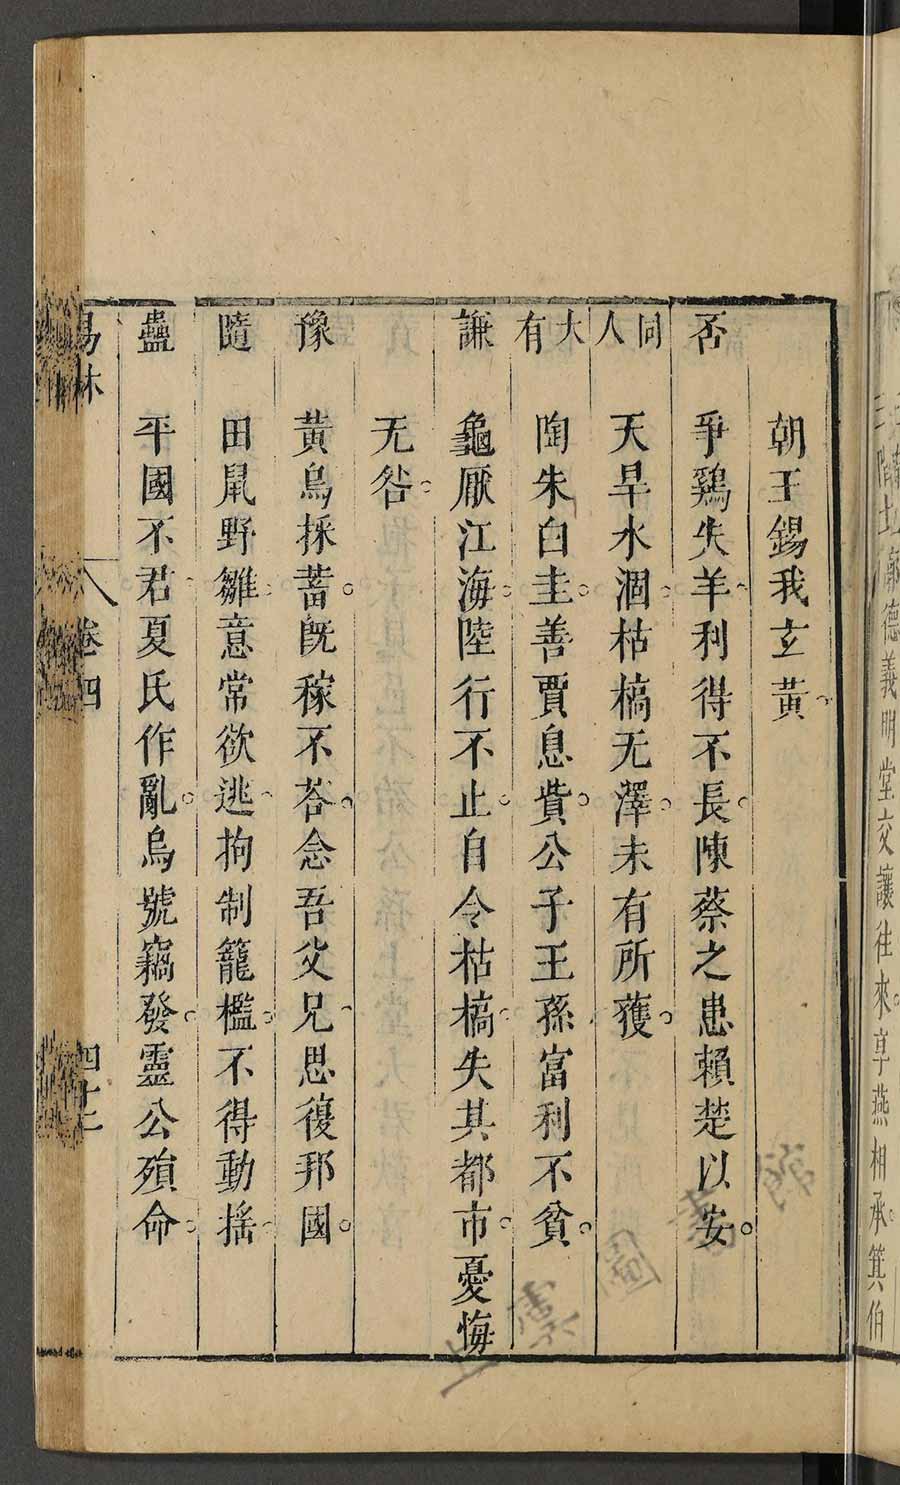 三階土廓德義明堂交讓往來享燕相承箕伯
朝王錫我玄黃
否 爭鷄失羊利得不長陳蔡之患賴楚以安
同人 天旱水涸枯槁无澤未有所獲
大有 陶朱白圭善賈息貲公子王孫富利不貧
謙 龜厭江海陸行不止自令枯槁失其都市憂悔
无咎
豫 黃鳥採蓄旣稼不荅念吾父兄思復邦國
隨 田鼠野雛意常欲逃拘制籠檻不得動搖
蠱 平國不君夏氏作亂烏號竊發靈公殞命
易林 卷四 四十二